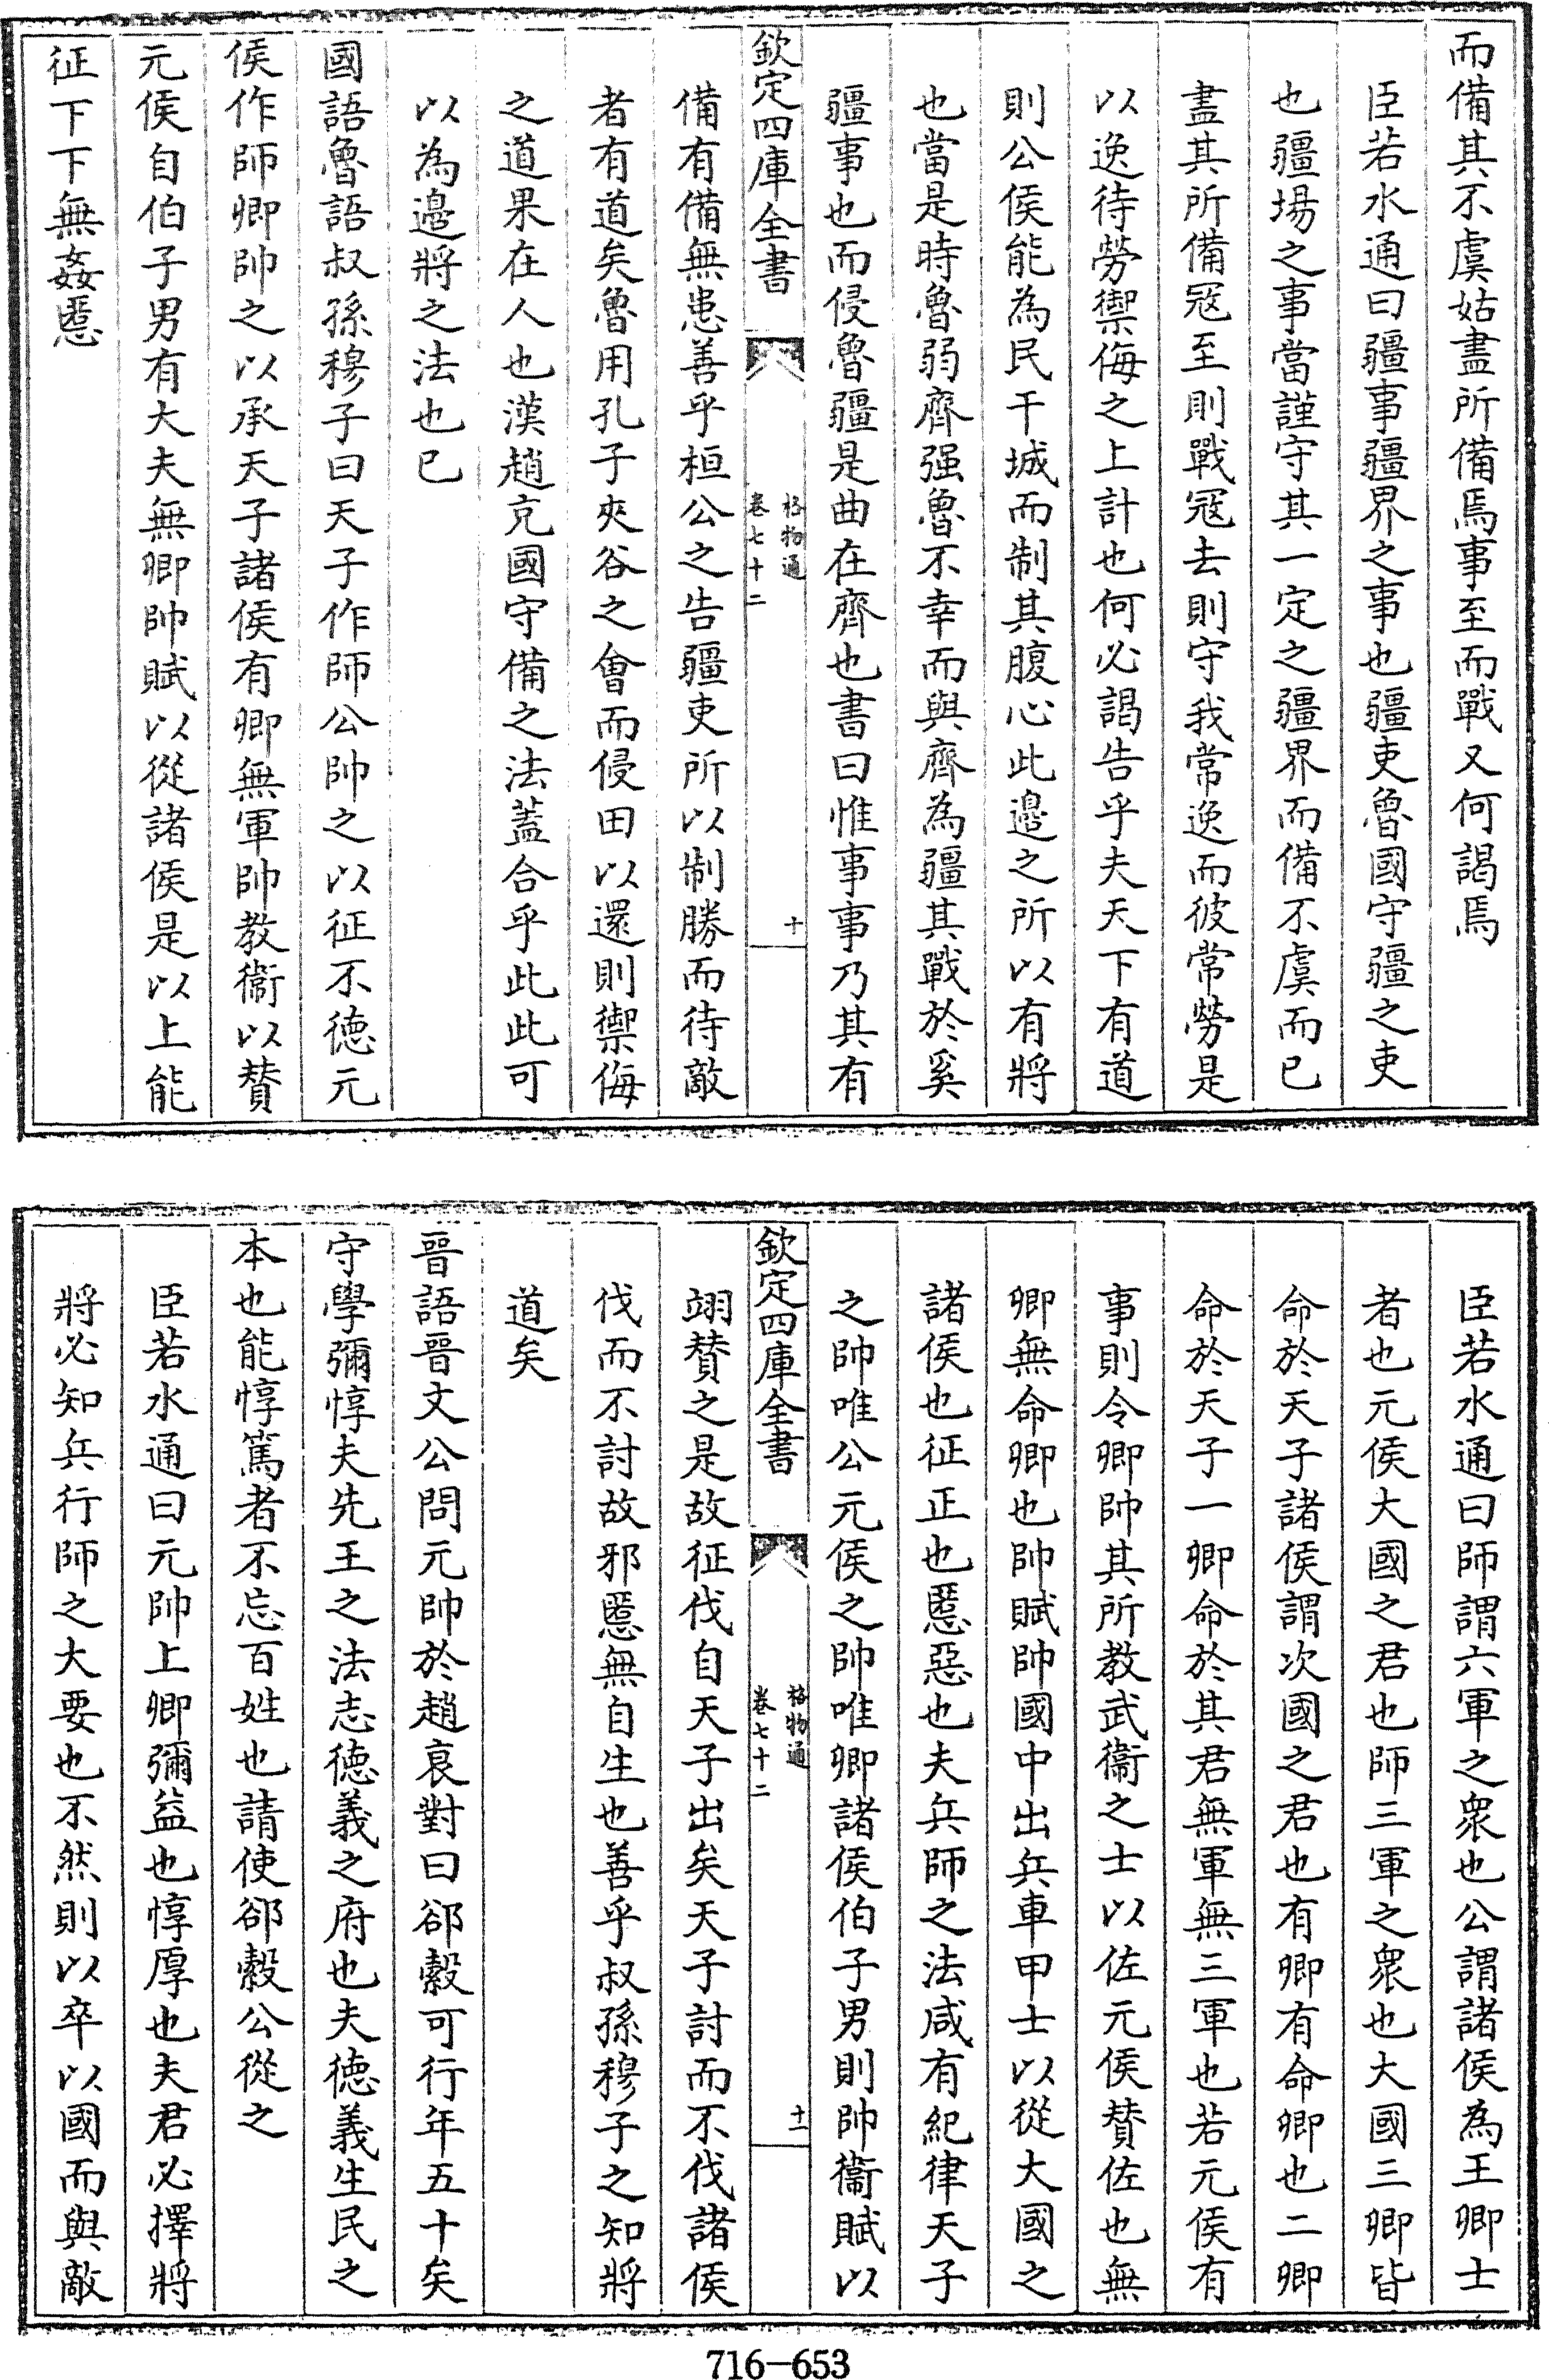 而備其不虞姑盡所備焉事至而戰又何謁焉
臣若水通曰疆事疆界之事也疆吏魯國守疆之吏
也疆場之事當謹守其一定之疆界而備不虞而已
盡其所備冦至則戰冦去則守我常逸而彼常勞是
以逸待勞禦侮之上計也何必謁告乎夫天下有道
則公侯能為民干城而制其腹心此邊之所以有將
也當是時魯弱齊强魯不幸而與齊為疆其戰於奚
疆事也而侵魯疆是曲在齊也書曰惟事事乃其有
欽定四庫全書
格物通
卷七十二
十
備有備無患善乎桓公之告疆吏所以制勝而待敵
者有道矣魯用孔子夾谷之會而侵田以還則禦侮
之道果在人也漢趙克國守備之法蓋合乎此此可
以為邊將之法也已
國語魯語叔孫穆子曰天子作師公帥之以征不德元
侯作師卿帥之以承天子諸侯有卿無軍帥教衞以贊
元侯自伯子男有大夫無卿帥賦以從諸侯是以上能
征下下無姦慝
臣若水通曰師謂六軍之衆也公謂諸侯為王卿士
者也元侯大國之君也師三軍之衆也大國三卿皆
命於天子諸侯謂次國之君也有卿有命卿也二卿
命於天子一卿命於其君無軍無三軍也若元侯有
事則令卿帥其所教武衞之士以佐元侯贊佐也無
卿無命卿也帥賦帥國中出兵車甲士以從大國之
諸侯也征正也慝惡也夫兵師之法咸有紀律天子
之帥唯公元侯之帥唯卿諸侯伯子男則帥衞賦以
欽定四庫全書
格物通
卷七十二
十一
翊贊之是故征伐自天子出矣天子討而不伐諸侯
伐而不討故邪慝無自生也善乎叔孫穆子之知將
道矣
晉語晉文公問元帥於趙衰對曰郤縠可行年五十矣
守學彌惇夫先王之法志德義之府也夫德義生民之
本也能惇篤者不忘百姓也請使郤縠公從之
臣若水通曰元帥上卿彌益也惇厚也夫君必擇將
將必知兵行師之大要也不然則以卒以國而與敵
716-653